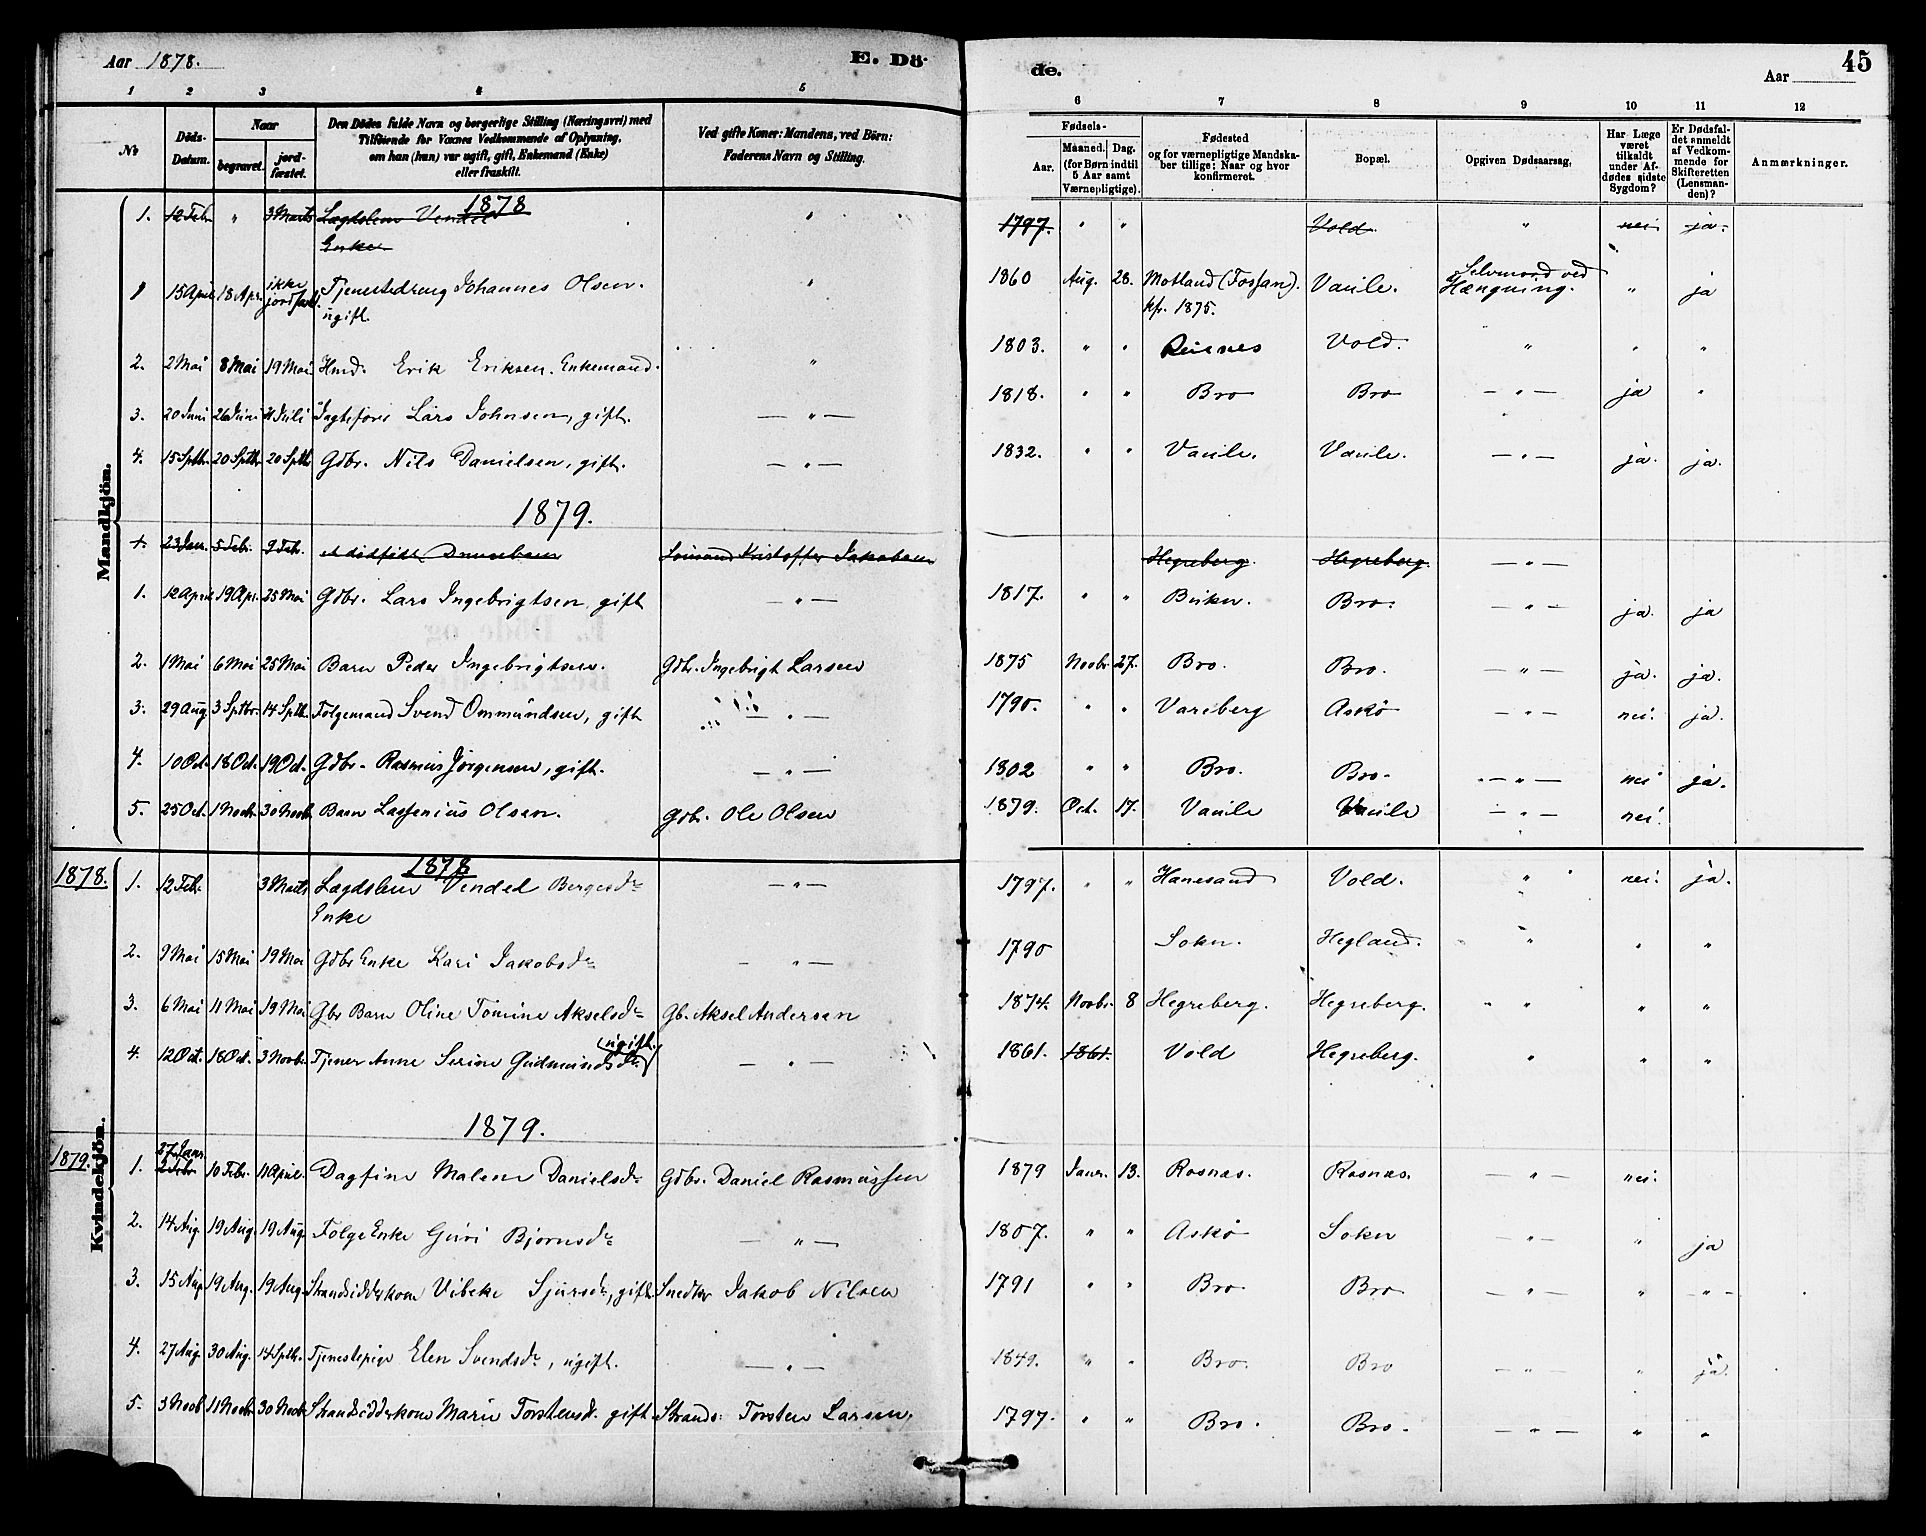 Aar 1878.
E. Dö-
de.
Aar
45
1 2 3 4 5 6 7 8 9 10 11 12
№
Döds-Datum.
Naar
begravet.
jord-fæstet.
Den Dödes fulde Navn og borgerlige Stilling (Næringsvei) med
Tilföiende for Voxnes Vedkommende af Oplysning,
om han (hun) var ugift, gift, Enkemand (Enke)
eller fraskilt.
Ved gifte Koner: Mandens, ved Börn:
Faderens Navn og Stilling.
Fødsels-
Aar.
Maaned. Dag.
(for Børn indtil
5 Aar samt
Værnepligtige).
Fødested
og for værnepligtige Mandska-
ber tillige: Naar og hvor
konfirmeret.
Bopæl.
Opgiven Dødsaarsag,
Har Læge
været
tilkaldt
under Af-
dødes sidste
Sygdom?
Er Dødsfal-
det anmeldt
af Vedkom-
mende for
Skifteretten
(Lensman-
den)?
Anmærkninger.
Mandkjön.
1878
1. 12 Feb. " 3 Marts Lægdslem Vendel " 1797. " " Vold. " nei ja.
Enke
1 15 April 18 Apr. ikke jordf. Tjenestedreng Johannes Olsen. " 1860 Aug. 28. Motland (Fossan). Vaule. Selvmord ved Hængning. " ja
ugift. kf. 1875.
2. 2 Mai 8 Mai 19 Mai Hmd. Erik Eriksen. Enkemand. " 1803. " " Reienes Vold. " " "
3. 20 Juni 26 Juni 21 Juli Jagtefører Lars Johnsen, gift. — " — 1818. " " Bro Bro — " — ja "
4. 15 Sptbr. 20 Sptbr. 20 Sptb. Gdbr. Nils Danielsen, gift. — " — 1832. " " Vaule. Vaule. — " — ja. ja.
1879.
1. 23 Jan. 5 Feb. 9 Feb. et dødfødt Drengebarn Louisand Kristoffer Jakobsen Hegreberg. Hegreberg. — " —
1. 12 April 19 Apr. 25 Mai Gdbr. Lars Ingebrigtsen, gift — " — 1817. " " Bukn. Bro. — " — ja. ja
2. 1 Mai 6 Mai 25 Mai Barn Peder Ingebrigtsen. Gdbr. Ingebrigt Larsen 1875 Novbr. 27. Bro. Bro. — " — ja. ja.
3. 29 Aug 3 Sptbr. 14 Sptb. Følgemand Svend Ommundsen, gift — " — 1790. " " Vareberg Askø — " — nei. ja.
4. 10 Oct. 18 Oct. 19 Oct. Gdbr. Rasmus Jørgensen, gift. — " — 1802 " " Bro. Bro. — " — nei ja.
5. 25 Oct. 1 Novbr. 30 Novb. Barn Lassenius Olsen. Gdbr. Ole Olsen 1879. Oct. 17. Vaule Vaule — " — nei.
Kvindekjön.
1878
1878. 1. 12 Feb. 3 Marts Lægdslem Vendel Bergesdr. — " — 1797. " " Hanesand Vold. " nei. ja.
Enke
2. 9 Mai 15 Mai 19 Mai Gdbr Enke Kari Jakobsdr. — " — 1790 Sokn. Hegland. " " "
3. 6 Mai 11 Mai 19 Mai Gbr Barn Oline Tomine Akselsdr. Gb. Aksel Andersen 1874. Novbr. 8 Hegreberg. Hegreberg. " " "
4. 12 Oct. 18 Oct. 3 Novbr. Tjener Anne Serine Gudmundsdr. (ugift.) — " — 1861. 1861. Vold Hegreberg. " " "
1879.
1879. 1. 27 Janr. 2 Febr 10 Febr. 11 April. Dagfine Malene Danielsdr. Gdbr. Daniel Rasmussen 1879 Janr. 13. Rosnæs. Rosnæs. — " — nei.
2. 14 Aug. 19 Aug. 19 Aug Følge Enke Guri Bjørnsdr. — " — 1807. " " Askø Sokn — " — " ja
3. 15 Aug 19 Aug. 19 Aug. Strandsidderkone Vibeke Sjursdr., gift Snedker Jakob Nilsen 1791 " " Bro Bro — " — " — " —
4. 27 Aug. 30 Aug. 14 Sptb. Tjenestepige Elen Svendsdr., ugift. — " — 1849. " " Bro. Bro — " — " ja.
5. 3 Novb 11 Novbr. 30 Novb. Strandsidderkone Mari Torstensd. gift Strands: Torsten Larsen, 1797. " " Bro. Bro. — " — " "